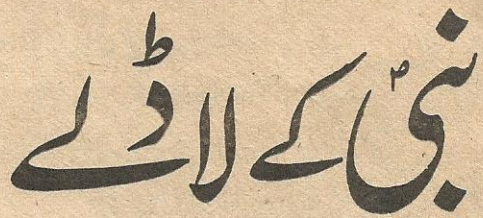 نبیؐ کے لاڈلے